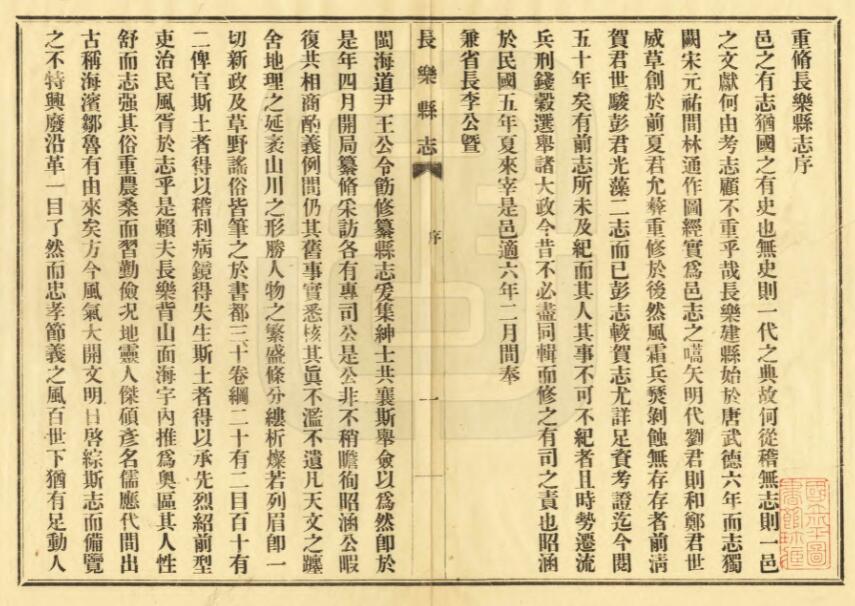 重脩長樂縣志序
邑之有志猶國之有史也無史則一代之典故何從稽無志則一邑
之文獻何由考志顧不重乎哉長樂建縣始於唐武德六年而志獨
闕宋元祐間林通作圖經實爲邑志之嚆矢明代劉君則和鄭君世
威草創於前夏君允彝重修於後然風霜兵燹剝蝕無存存者前淸
賀君世駿彭君光藻二志而已彭志較賀志尤詳足資考證迄今閱
五十年矣有前志所未及紀而其人其事不可不紀者且時勢遷流
兵刑錢穀選舉諸大政今昔不必盡同輯而修之有司之責也昭涵
於民國五年夏來宰是邑適六年二月間奉
兼省長李公曁
長樂縣志
序
一
閩海道尹王公令飭修纂縣志爰集紳士共襄斯舉僉以爲然卽於
是年四月開局纂脩采訪各有專司公是公非不稍瞻徇昭涵公暇
復共相商酌義例間仍其舊事實悉核其眞不濫不遺凡天文之躔
舍地理之延袤山川之形勝人物之繁盛條分縷析燦若列眉卽一
切新政及草野謠俗皆筆之於書都三十卷綱二十有二目百十有
二俾官斯土者得以稽利病鏡得失生斯土者得以承先烈紹前型
吏治民風胥於志乎是賴夫長樂背山面海宇內推爲奧區其人性
舒而志强其俗重農桑而習勤儉況地靈人傑碩彥名儒應代間出
古稱海濱鄒魯有由來矣方今風氣大開文明日啓綜斯志而備覽
之不特興廢沿革一目了然而忠孝節義之風百世下猶有足動人